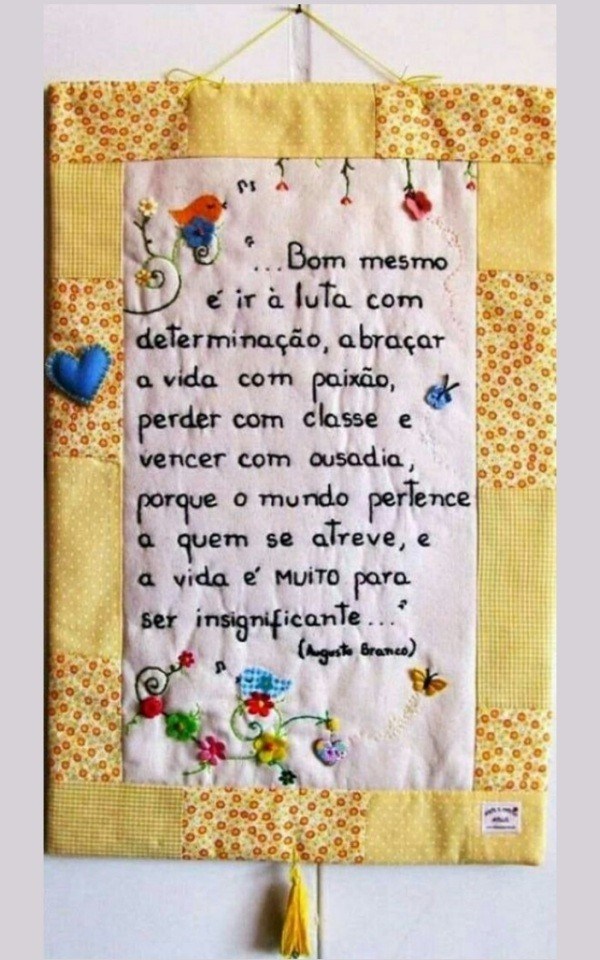 "...Bom mesmo
é ir à luta com
determinação, abraçar
a vida com paixão,
perder com classe e
vencer com ousadia,
porque o mundo pertence
a quem se atreve, e
a vida é MUITO para
ser insignificante..."
(Augusto Branco)